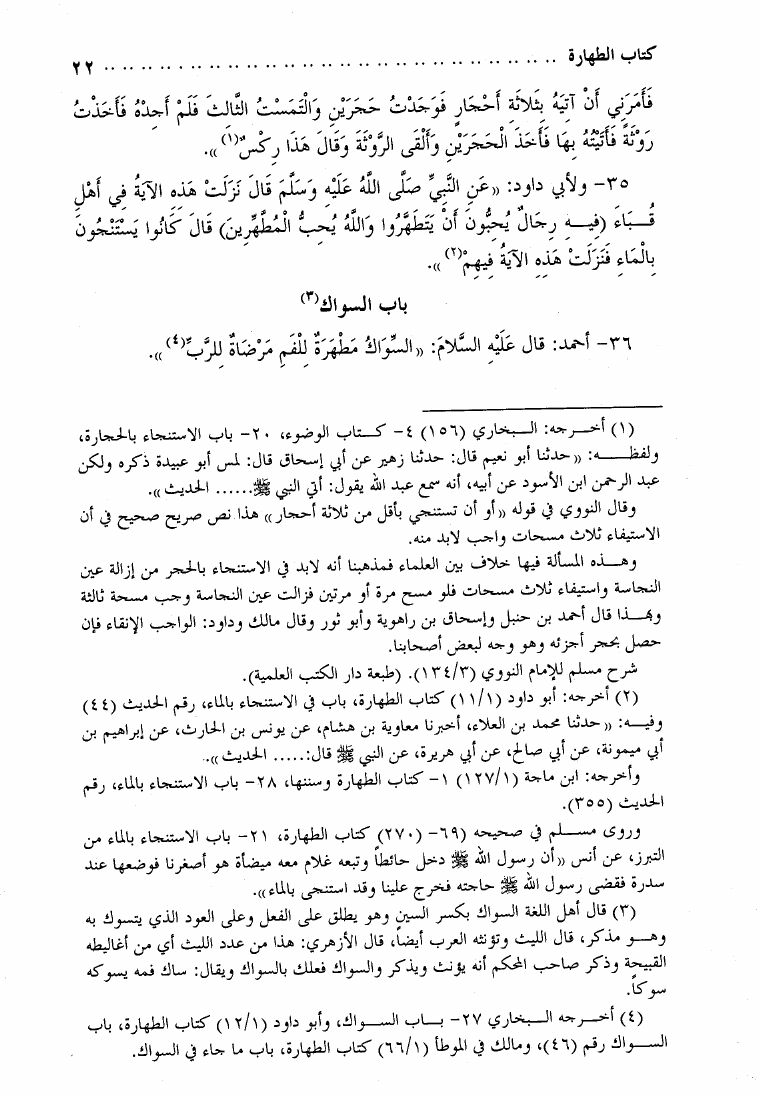 كتاب الطهارة .................................................. ٢٢
فَأَمَرَنِي أَنْ آتِيَهُ بِثَلاثَةِ أَحْجَارٍ فَوَجَدْتُ حَجَرَيْنِ وَالْتَمَسْتُ الثَّالِثَ فَلَمْ أَجِدْهُ فَأَخَذْتُ
رَوْثَةً فَأَتَيْتُهُ بِهَا فَأَخَذَ الْحَجَرَيْنِ وَأَلْقَى الرَّوْثَةَ وَقَالَ هَذَا رِكْسٌ(١)».
٣٥- ولأبي داود: «عَنِ النَّبِيِّ صَلَّى اللَّهُ عَلَيْهِ وَسَلَّمَ قَالَ نَزَلَتْ هَذِهِ الآيَةُ فِي أَهْلِ
قُـبَاءَ (فِيـهِ رِجَالٌ يُحِبُّونَ أَنْ يَتَطَهَّرُوا وَاللَّهُ يُحِبُّ الْمُطَّهِّرِينَ) قَالَ كَانُوا يَسْتَنْجُونَ
بِالْمَاءِ فَنَزَلَتْ هَذِهِ الآيَةُ فِيهِمْ(٢)».
باب السواك(٣)
٣٦- أحمد: قال عَلَيْهِ السَّلامُ: «السِّوَاكُ مَطْهَرَةٌ لِلْفَمِ مَرْضَاةٌ لِلرَّبِّ(٤)».
(١) أخـرجه: الـبخاري (١٥٦) ٤- كـتاب الوضوء، ٢٠- باب الاستنجاء بالحجارة،
ولفظـه: «حدثنا أبو نعيم قال: حدثنا زهير عن أبي إسحاق قال: لمس أبو عبيدة ذكره ولكن
عبد الرحمن ابن الأسود عن أبيه، أنه سمع عبد الله يقول: أتي النبي ﷺ...... الحديث».
وقال النووي في قوله «أو أن تستنجي بأقل من ثلاثة أحجار» هذا نص صريح صحيح في أن
الاستيفاء ثلاث مسحات واجب لابد منه.
وهـذه المسألة فيها خلاف بين العلماء فمذهبنا أنه لابد في الاستنجاء بالحجر من إزالة عين
النجاسة واستيفاء ثلاث مسحات فلو مسح مرة أو مرتين فزالت عين النجاسة وجب مسحة ثالثة
وبهـذا قال أحمد بن حنبل وإسحاق بن راهوية وأبو ثور وقال مالك وداود: الواجب الإنقاء فإن
حصل بحجر أجزئه وهو وجه لبعض أصحابنا.
شرح مسلم للإمام النووي (١٣٤/٣). (طبعة دار الكتب العلمية).
(٢) أخرجه: أبو داود (١١/١) كتاب الطهارة، باب في الاستنجاء بالماء، رقم الحديث (٤٤)
وفيـه: «حدثنا محمد بن العلاء، أخبرنا معاوية بن هشام، عن يونس بن الحارث، عن إبراهيم بن
أبي ميمونة، عن أبي صالح، عن أبي هريرة، عن النبي ﷺ قال:..... الحديث».
وأخرجه: ابن ماجة (١٢٧/١) ١- كتاب الطهارة وسننها، ٢٨- باب الاستنجاء بالماء، رقم
الحديث (٣٥٥).
وروى مسـلم في صحيحه (٦٩- (٢٧٠) كتاب الطهارة، ٢١- باب الاستنجاء بالماء من
التبرز، عن أنس «أن رسول الله ﷺ دخل حائطاً وتبعه غلام معه ميضأة هو أصغرنا فوضعها عند
سدرة فقضى رسول الله ﷺ حاجته فخرج علينا وقد استنجى بالماء».
(٣) قال أهل اللغة السواك بكسر السين وهو يطلق على الفعل وعلى العود الذي يتسوك به
وهـو مذكر، قال الليث وتؤنثه العرب أيضاً، قال الأزهري: هذا من عدد الليث أي من أغاليطه
القبيحة وذكر صاحب المحكم أنه يؤنث ويذكر والسواك فعلك بالسواك ويقال: ساك فمه يسوكه
سوكاً.
(٤) أخـرجه الـبخاري ٢٧- بـاب السـواك، وأبو داود (١٢/١) كتاب الطهارة، باب
السـواك رقم (٤٦)، ومالك في الموطأ (٦٦/١) كتاب الطهارة، باب ما جاء في السواك.